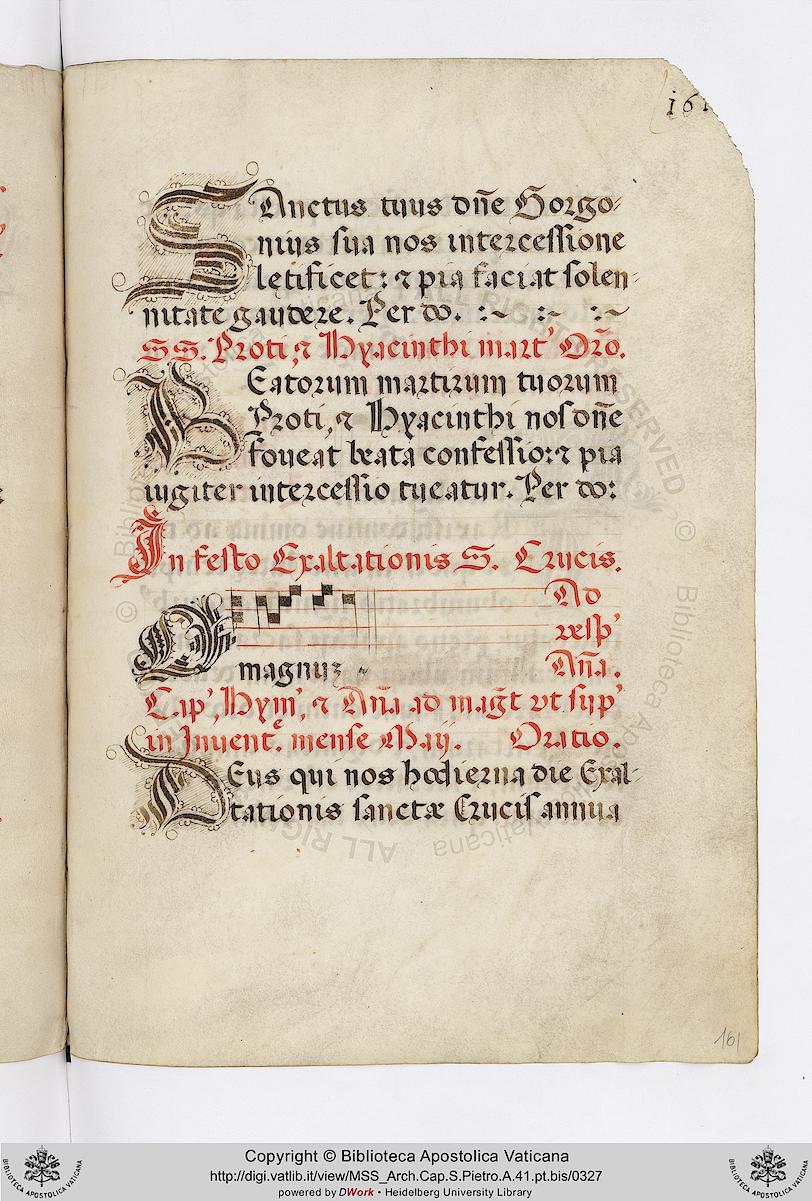 161
SAnctus tuus dñe Gorgo-
nius sua nos intercessione
letificet: ⁊ pia faciat solen-
nitate gaudere. Per do. :~ :~ :~
SS. Proti, ⁊ Hyacinthi mart' Orõ.
BEatorum martirum tuorum
Proti, ⁊ Hyacinthi nos dñe
foveat beata confessio: ⁊ pia
iugiter intercessio tueatur. Per do:
In festo Exaltationis S. Crucis.
O Ad
resp'
magnuȝ Aña.
Cap', Hym', ⁊ Aña ad mag̃t vt sup'
in Inuent. mense Maij. Oratio.
DEus qui nos hodierna die Exal-
tationis sanctæ Crucis annua
161
Copyright © Biblioteca Apostolica Vaticana
http://digi.vatlib.it/view/MSS_Arch.Cap.S.Pietro.A.41.pt.bis/0327
powered by DWork • Heidelberg University Library